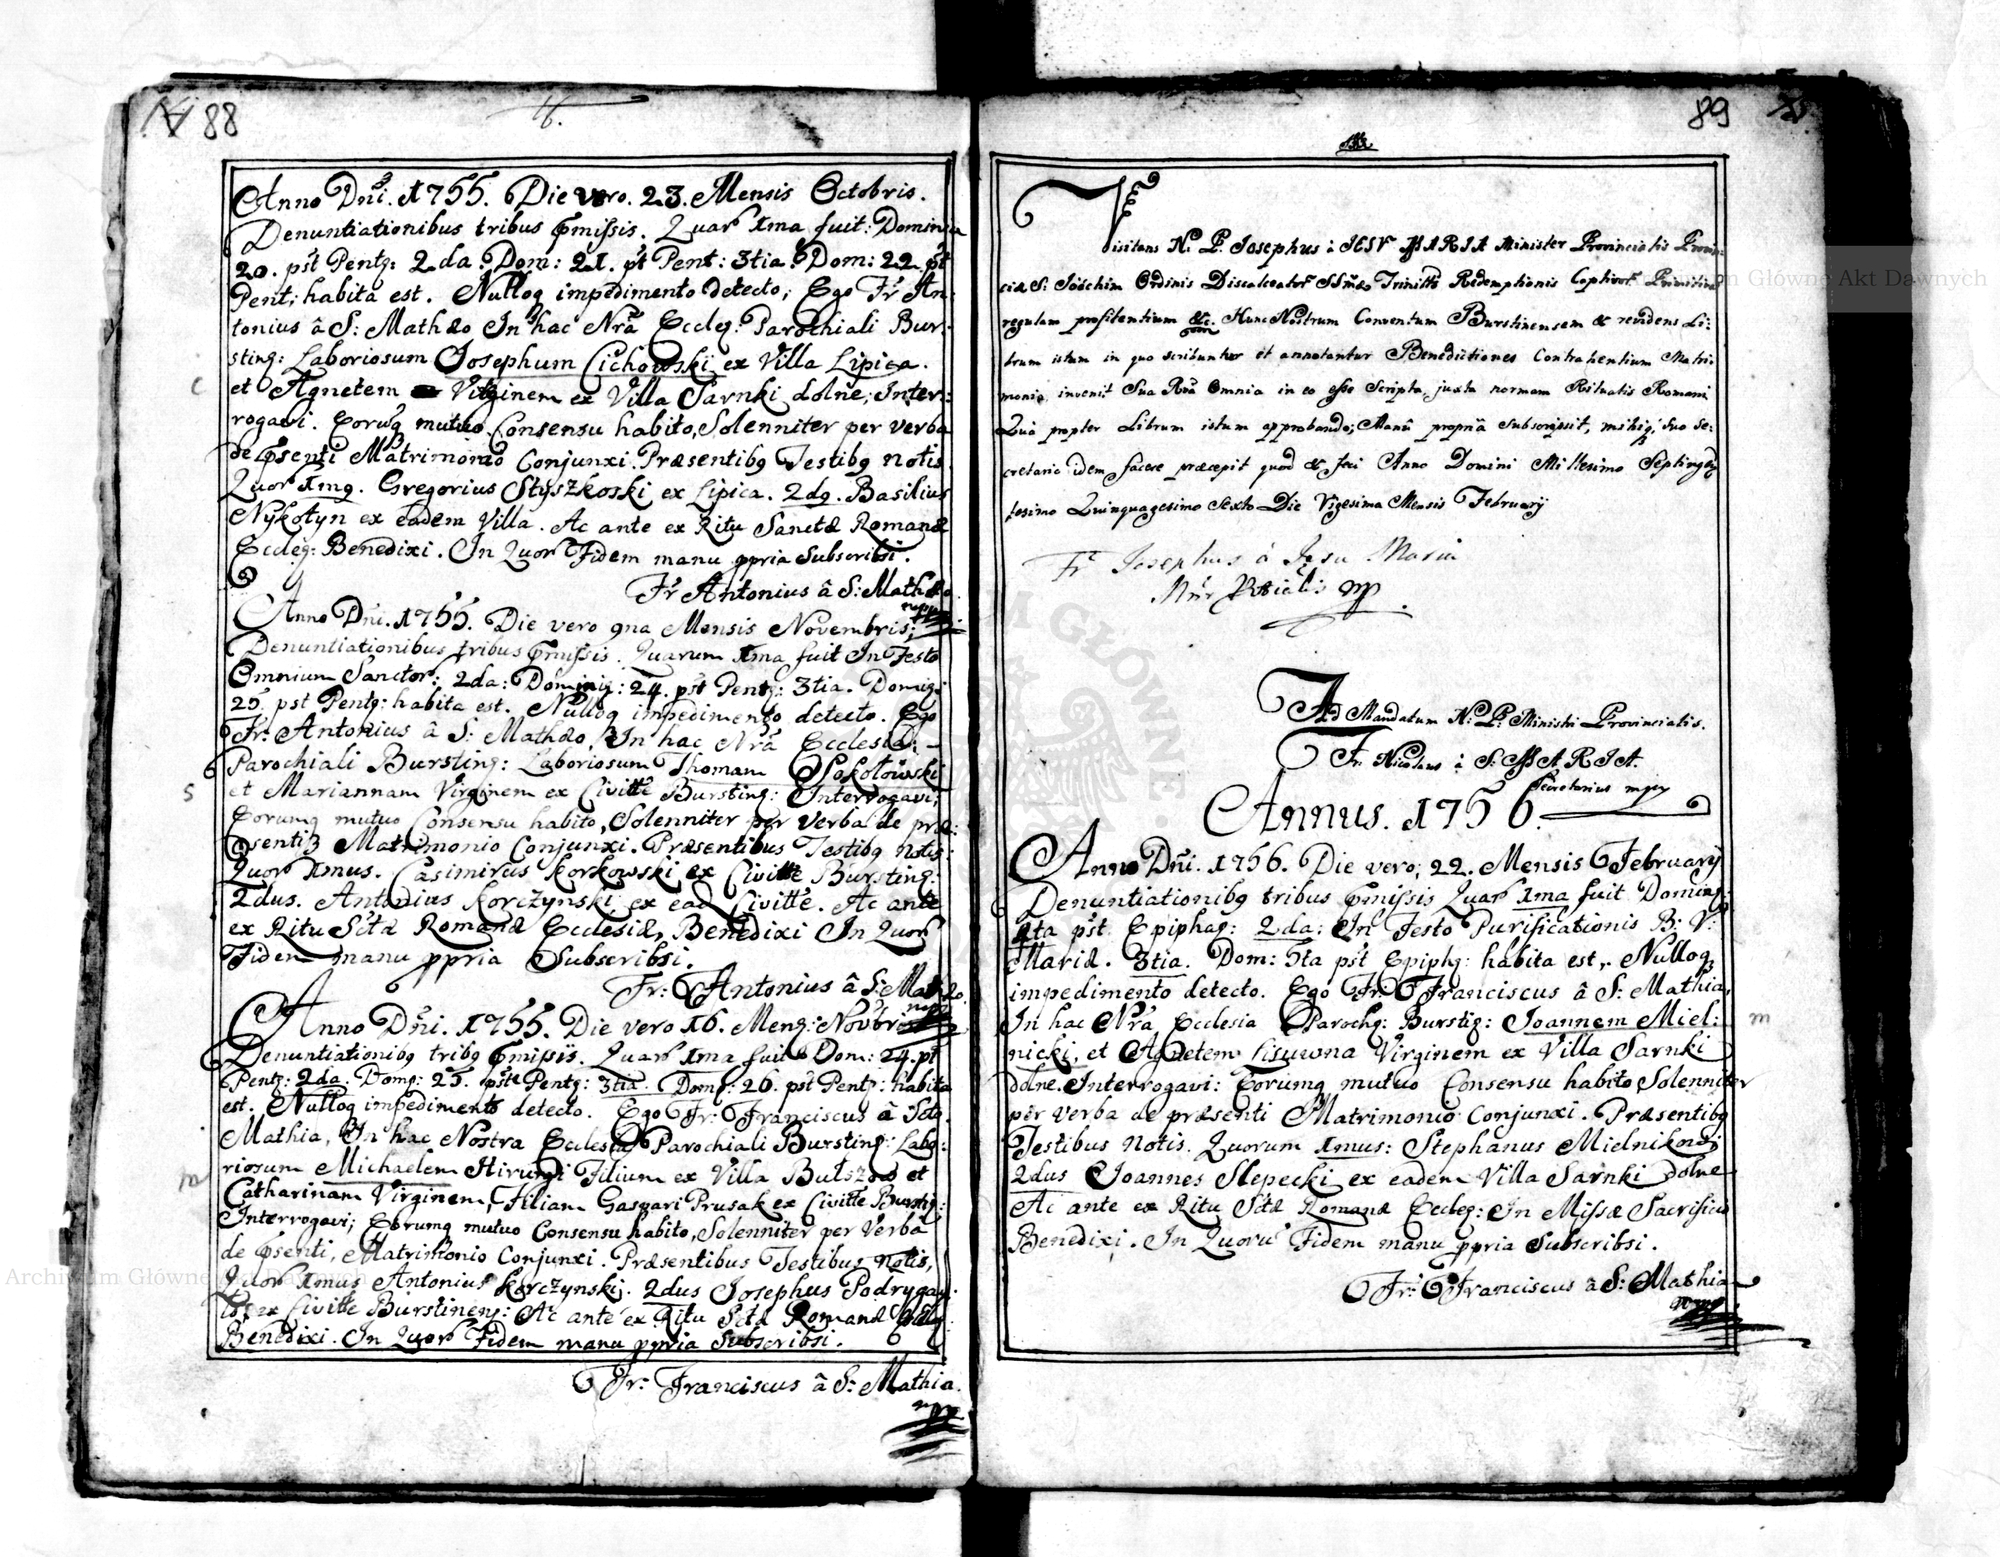 88
Anno Dñi. 1755. Die vero. 23. Mensis Octobris.
Denuntiationibus tribus pmissis. Quar 1ma fuit: Dominica
20. pst Pentq: 2da. Dom: 21. pt Pent: 3tia. Dom: 22. pt
Pent; habita est. Nulloq impedimento detecto; Ego Fr An-
tonius â S: Mathæo In hac Nrâ Eccleq: Parochiali Bur-
stinq: Laboriosum Josephum Cichowski ex Villa Lipica.
et Agnetem Virginem ex Villa Sarnki dolne; Inter-
rogavi. Eorumq mutuo Consensu habito, Solenniter per verba
de psenti Matrimonio Conjunxi. Præsentibq Testibq notis
Quor 1mq. Gregorius Styszkoski ex Lipica. 2dq. Basilius
Nykotyn ex eadem Villa. Ac ante ex Ritu Sanctæ Romanæ
Eccleq: Benedixi. In Quor Fidem manu ppria Subscribsi.
Fr Antonius â S: Mathæo
mpp
Anno Dñi. 1755. Die vero 9na Mensis Novembris;
Denuntiationibus tribus pmissis. Quarum 1ma fuit In Festo
Omnium Sanctor: 2da: Dominiq: 24. pst Pentq: 3tia. Domiq:
25. pst Pentq: habita est. Nulloq impedimento detecto. Ego
Fr: Antonius â S: Mathæo, In hac Nrâ Ecclesia
Parochiali Burstinq: Laboriosum Thomam Sokołowski
et Mariannam Virginem ex Civitte Burstinq: Interrogavi;
Eorumq mutuo Consensu habito, Solenniter per Verba de præ-
senti Matrimonio Conjunxi. Præsentibus Testibq notis:
Quor 1mus. Casimirus Korkowski ex Civitte Burstinq:
2dus. Antonius Korczynski ex ead Civitte. Ac ante
ex Ritu Sctæ Romanæ Ecclesiæ, Benedixi In Quor
Fidem manu ppria Subscribsi.
Fr: Antonius â S: Mathæo.
Anno Dñi. 1755. Die vero 16. Menq: Novbris
Denuntiationibq tribq pmissis. Quar 1ma fuit Dom: 24. pt
Pentq: 2da. Domq: 25. pste Pentq: 3tia. Domq: 26. pst Pentq: habita
est. Nulloq impedimento detecto. Ego Fr: Franciscus â Scto
Mathia, In hac Nostra Ecclesia Parochiali Burstinq: Labo-
riosum Michaelem Hirumi Filium ex Villa Bulszow et
Catharinam Virginem, Filiam Gaspari Prusak ex Civitte Burstiq:
Interrogavi; Eorumq mutuo Consensu habito, Solenniter per Verba
de psenti, Matrimonio Conjunxi. Præsentibus Testibus notis,
Quor 1mus Antonius Korczynski. 2dus Josephus Podrygay-
ex Civitte Burstineng: Ac ante ex Ritu Sctæ Romanæ
Benedixi. In Quor Fidem manu ppria Subscribsi.
Fr: Franciscus â S: Mathia.
mpp
C
S
m
89
Visitans N: P: Josephus à JESV MARIA Minister Provincialis Provin-
ciæ S: Joachim Ordinis Discalceator SSmæ Trinitts Redemptionis Captivor Primitivam
regulam profitentium &c. Hunc Nostrum Conventum Burstinensem & revidens Li-
brum istum in quo scribuntur et annotantur Benedictiones Contrahentium Matri-
monia, invenit Sua Rnâ Omnia in eo esse Scripta, juxta normam Ritualis Romani
Quâ propter Librum istum approbando; Manû propriâ subscripsit, mihiq; suo Se-
cretario idem facere præcepit quod & feci Anno Domini Millesimo Septingen-
tesimo Quinquagesimo Sexto Die Vigesima Mensis February
Fr Josephus à Jesu Maria
Mnr Prcialis mp
Ad Mandatum N: P: Ministri Provincialis.
Fr. Nicolaus à S: MARIA.
Secretarius mpp
Annus. 1756.
Anno Dñi. 1756. Die vero; 22. Mensis February
Denuntiationibq tribus pmissis Quar 1ma fuit Dominq:
4ta pst. Epiphaq: 2da: In Festo Purificationis B: V:
Mariæ. 3tia. Dom: 5ta pst Epiphq: habita est,. Nulloq
impedimento detecto. Ego Fr: Franciscus â S: Mathia,
In hac Nrâ Ecclesia Parochq: Burstiq: Joannem Miel-
nicki, et Agnetem Lisuwna Virginem ex Villa Sarnki
dolne. Interrogavi: Eorumq mutuo Consensu habito, Solenniter
per verba de præsenti Matrimonio Conjunxi. Præsentibq
Testibus Notis. Quorum 1mus: Stephanus Mielnikow;
2dus Joannes Slepecki ex eadem Villa Sarnki dolne
Ac ante ex Ritu Sctæ Romanæ Eccleq: In Missæ Sacrificio
Benedixi. In Quoru Fidem manu ppria Subscribsi.
Fr: Franciscus â S: Mathia
mpp
m
Archiwum Główne Akt Dawnych